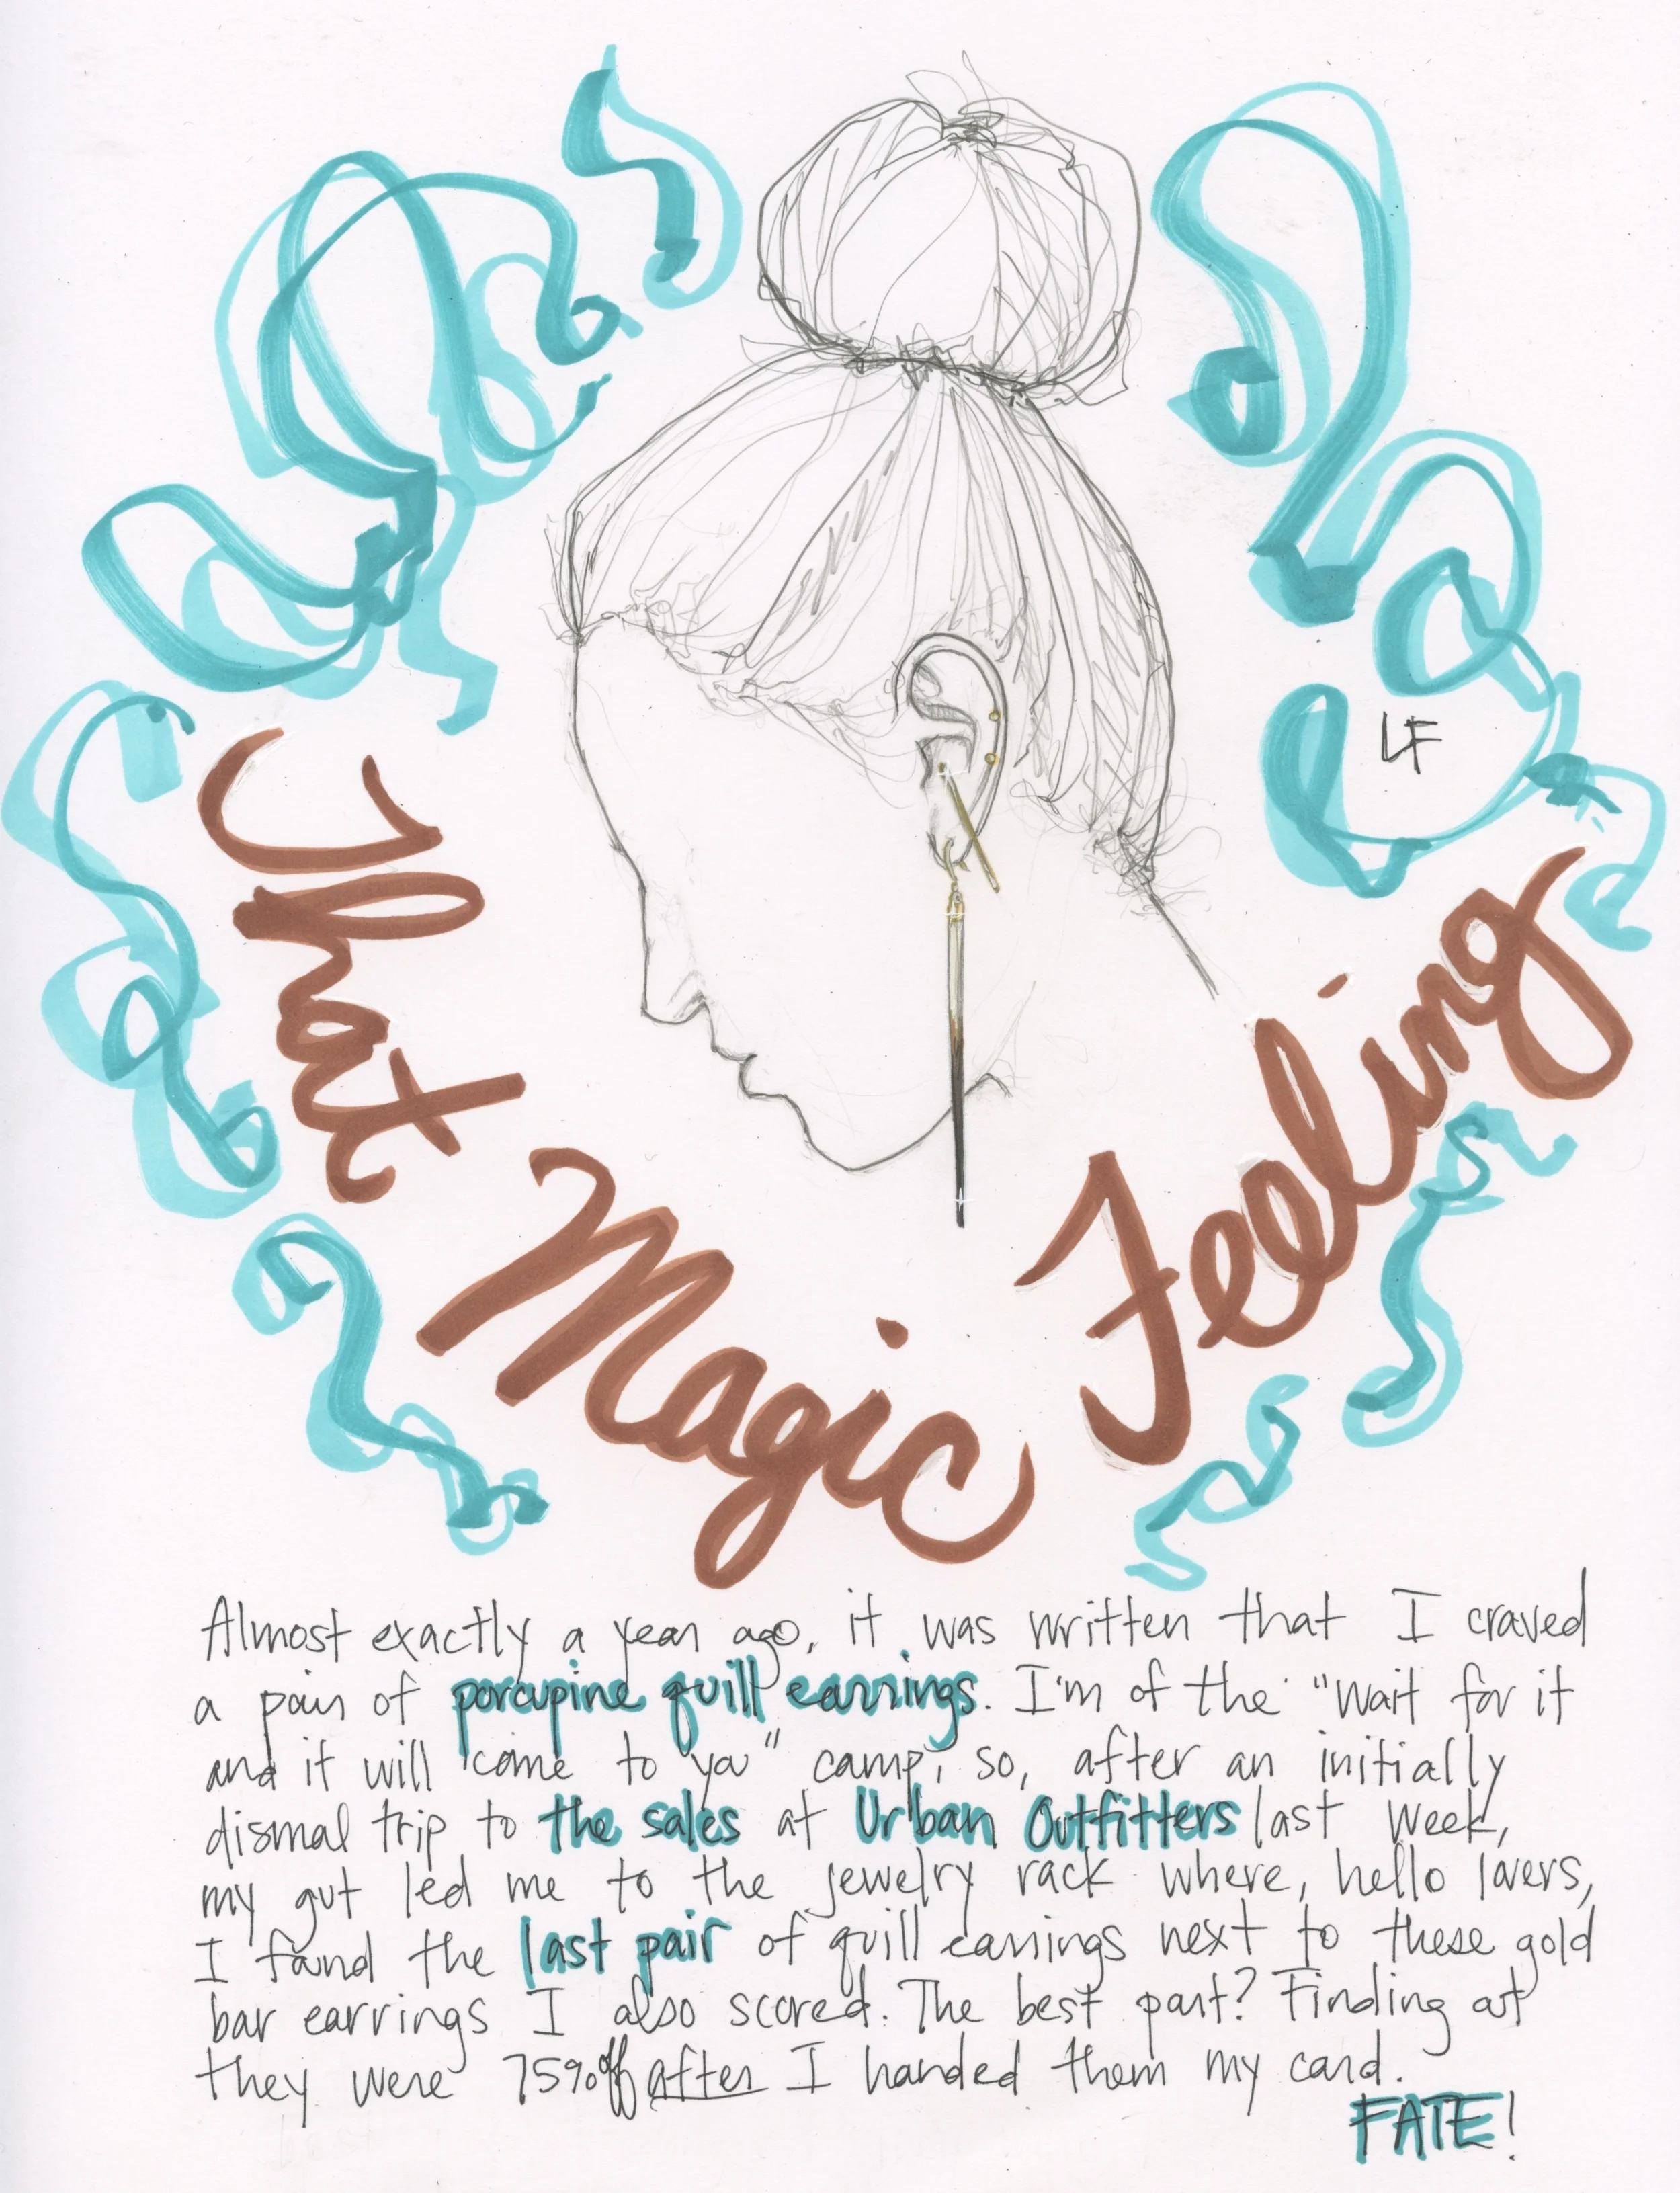 LF
That Magic Feeling
Almost exactly a year ago, it was written that I craved
a pair of porcupine quill earrings. I'm of the "Wait for it
and it will come to you" camp, so, after an initially
dismal trip to the sales at Urban Outfitters last week,
my gut led me to the jewelry rack where, hello lovers,
I found the last pair of quill earrings next to these gold
bar earrings I also scored. The best part? Finding out
they were 75% off after I handed them my card.
FATE!